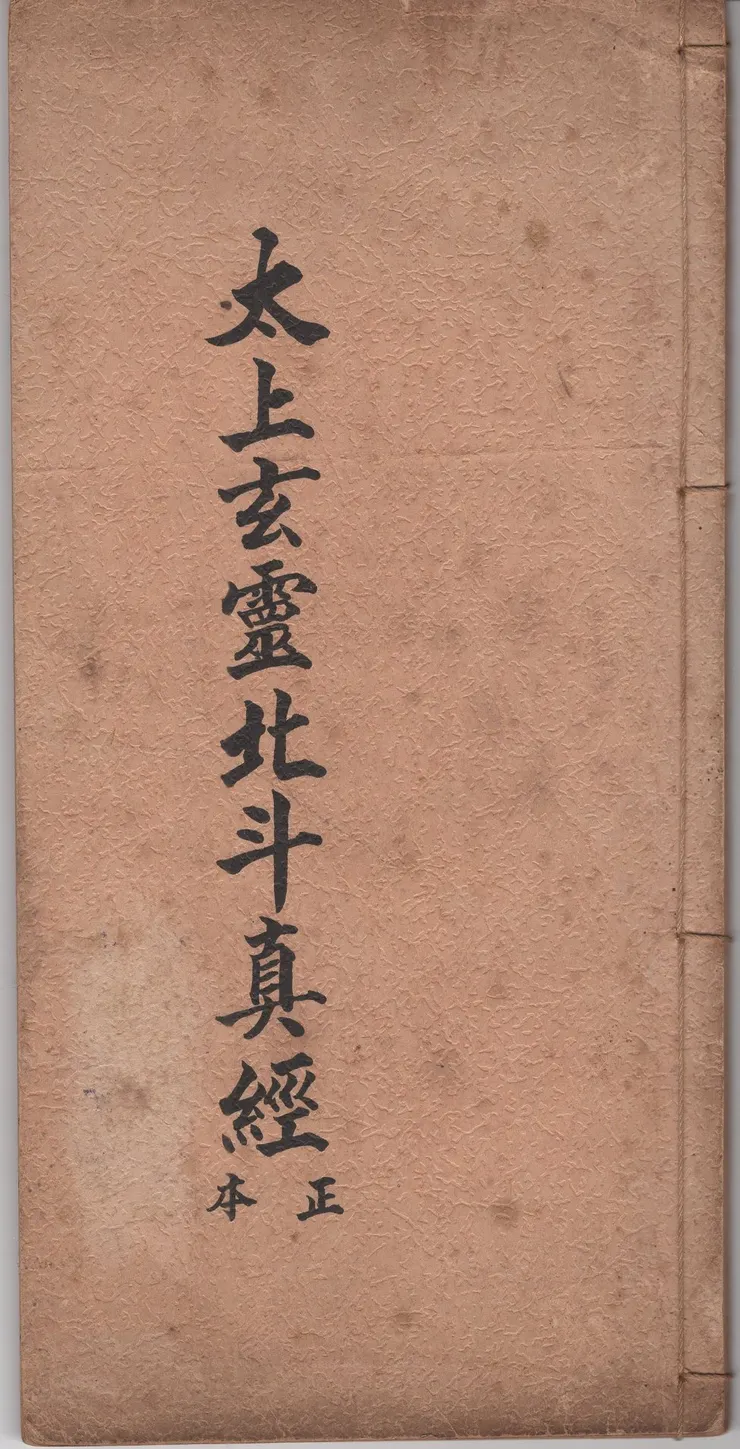 太上玄靈北斗真經
正本